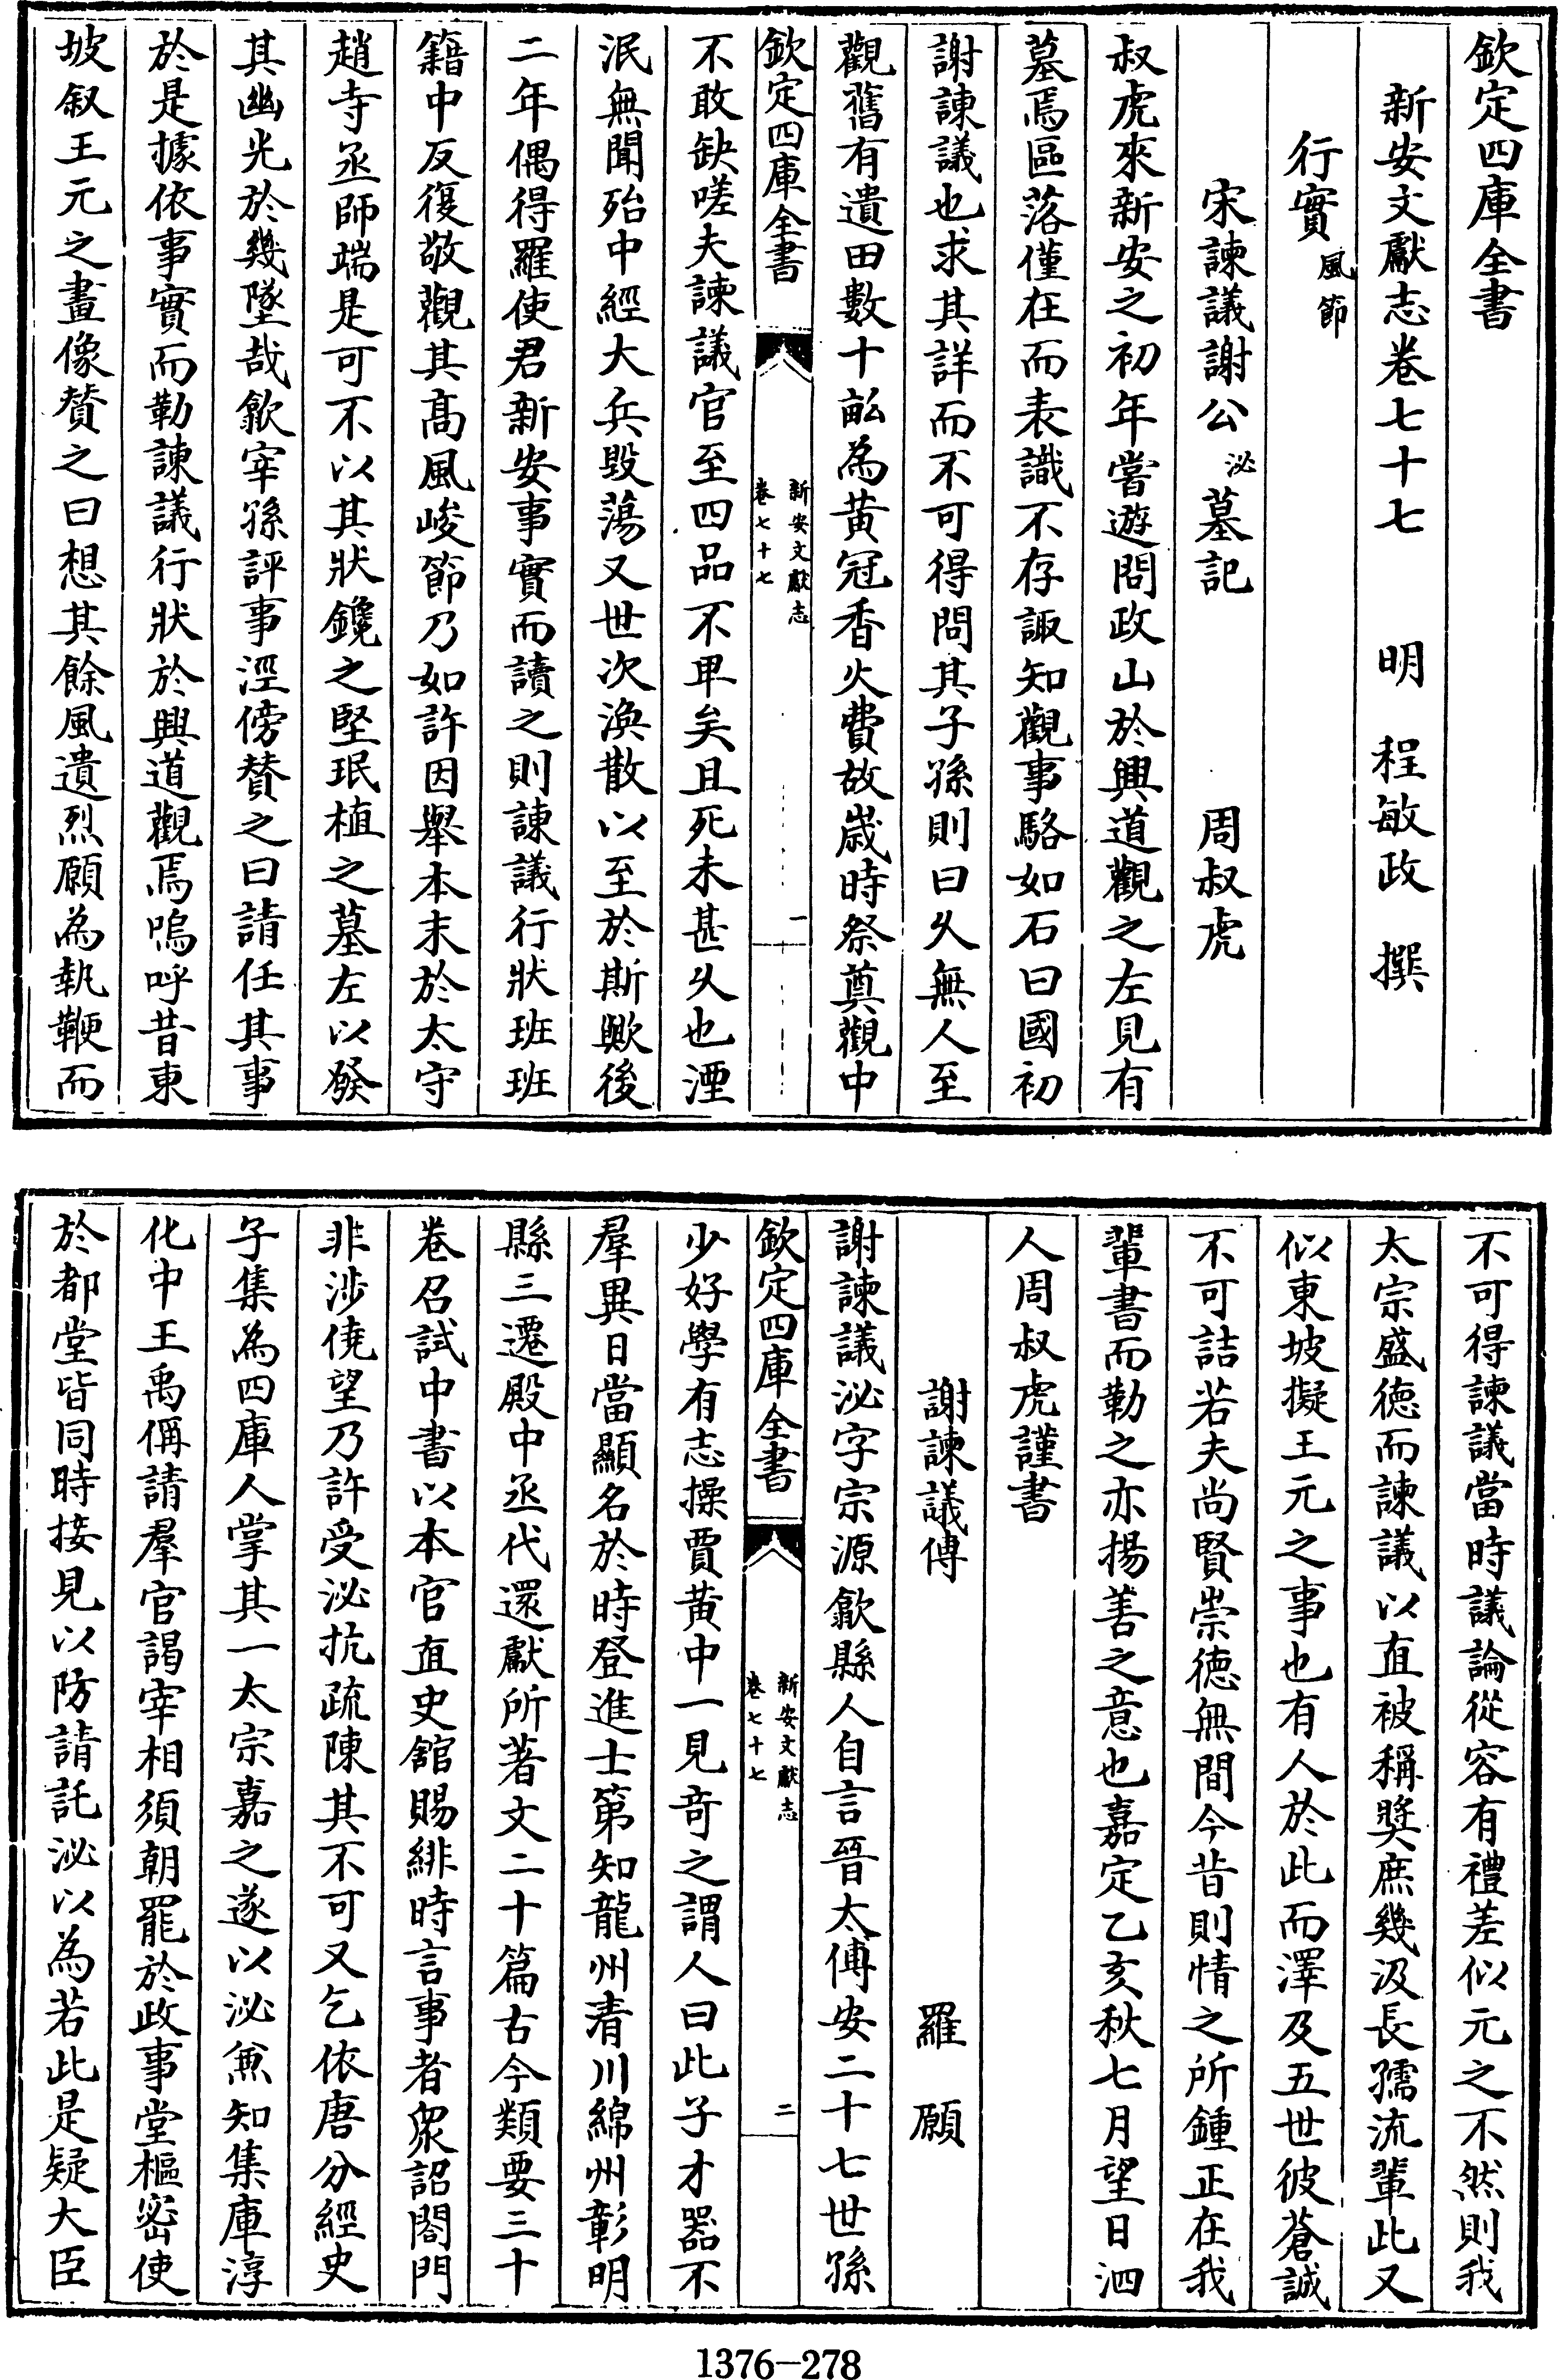 欽定四庫全書
新安文獻志卷七十七　明　程敏政　撰
行實風節
宋諫議謝公泌墓記　周叔虎
叔虎來新安之初年嘗遊問政山於興道觀之左見有
墓焉區落僅在而表識不存諏知觀事駱如石曰國初
謝諫議也求其詳而不可得問其子孫則曰久無人至
觀舊有遺田數十畆為黄冠香火費故歳時祭奠觀中
欽定四庫全書
新安文獻志
卷七十七
一
不敢缺嗟夫諫議官至四品不卑矣且死未甚久也湮
泯無聞殆中經大兵毁蕩又世次渙散以至於斯歟後
二年偶得羅使君新安事實而讀之則諫議行狀班班
籍中反復敬觀其髙風峻節乃如許因舉本末於太守
趙寺丞師端是可不以其狀鑱之堅珉植之墓左以發
其幽光於幾墜哉歙宰孫評事涇傍賛之曰請任其事
於是據依事實而勒諫議行狀於興道觀焉嗚呼昔東
坡叙王元之畫像賛之曰想其餘風遺烈願為執鞭而
不可得諫議當時議論從容有禮差似元之不然則我
太宗盛徳而諫議以直被稱奬庶幾汲長孺流輩此又
似東坡擬王元之事也有人於此而澤及五世彼蒼誠
不可詰若夫尚賢崇徳無間今昔則情之所鍾正在我
輩書而勒之亦揚善之意也嘉定乙亥秋七月望日泗
人周叔虎謹書
謝諫議傳　羅　願
謝諫議泌字宗源歙縣人自言晉太傅安二十七世孫
欽定四庫全書
新安文獻志
卷七十七
二
少好學有志操賈黄中一見竒之謂人曰此子才器不
羣異日當顯名於時登進士第知龍州清川綿州彰明
縣三遷殿中丞代還獻所著文二十篇古今類要三十
卷召試中書以本官直史舘賜緋時言事者衆詔閤門
非涉僥望乃許受泌抗疏陳其不可又乞依唐分經史
子集為四庫人掌其一太宗嘉之遂以泌兼知集庫淳
化中王禹偁請羣官謁宰相須朝罷於政事堂樞密使
於都堂皆同時接見以防請託泌以為若此是疑大臣
1376-278